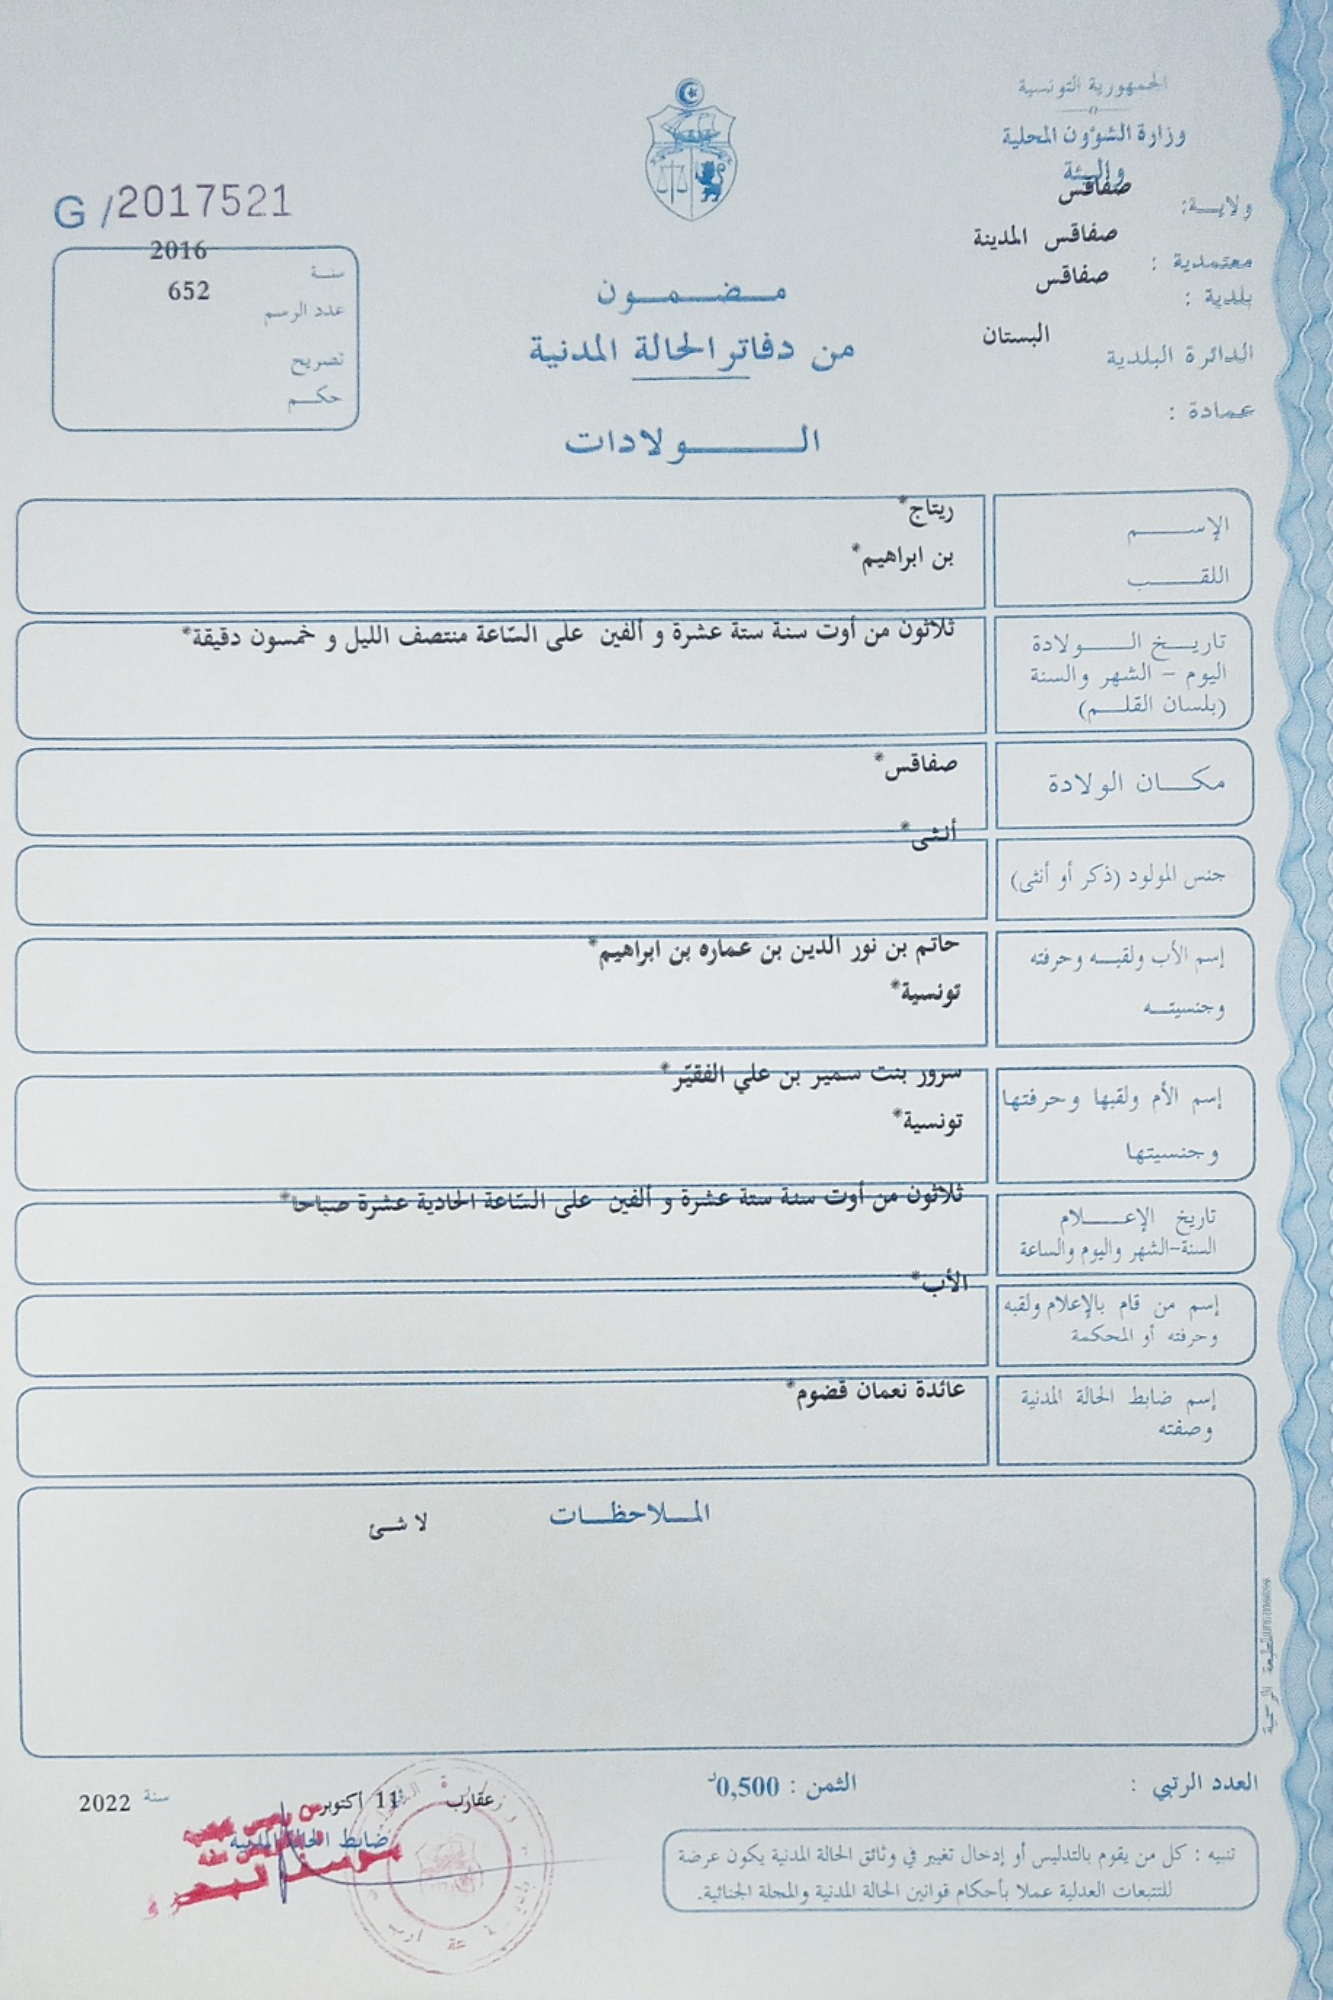 الجمهورية التونسية
وزارة الشؤون المحلية
والبيئة
ولايـة: صفاقس
معتمدية : صفاقس المدينة
بلدية : صفاقس
الدائرة البلدية البستان
عمادة :
G /2017521
سنة 2016
عدد الرسم 652
تصريح
حكم
مضمون
من دفاتر الحالة المدنية
الولادات
الإسم ريتاج*
اللقب بن ابراهيم*
تاريخ الولادة ثلاثون من أوت سنة ستة عشرة و ألفين على السّاعة منتصف الليل و خمسون دقيقة*
اليوم - الشهر والسنة
(بلسان القلم)
مكان الولادة صفاقس*
جنس المولود (ذكر أو أنثى) أنثى*
إسم الأب ولقبه وحرفته حاتم بن نور الدين بن عماره بن ابراهيم*
وجنسيته تونسية*
إسم الأم ولقبها وحرفتها سرور بنت سمير بن علي الفقيّر*
وجنسيتها تونسية*
تاريخ الإعلام ثلاثون من أوت سنة ستة عشرة و ألفين على السّاعة الحادية عشرة صباحا*
السنة-الشهر واليوم والساعة
إسم من قام بالإعلام ولقبه الأب*
وحرفته أو المحكمة
إسم ضابط الحالة المدنية عائدة نعمان قضوم*
وصفته
الملاحظات
لا شئ
العدد الرتبي :
الثمن : 0,500د
عقارب 11 أكتوبر سنة 2022
ضابط الحالة المدنية
تنبيه : كل من يقوم بالتدليس أو إدخال تغيير في وثائق الحالة المدنية يكون عرضة
للتتبعات العدلية عملا بأحكام قوانين الحالة المدنية والمجلة الجنائية.